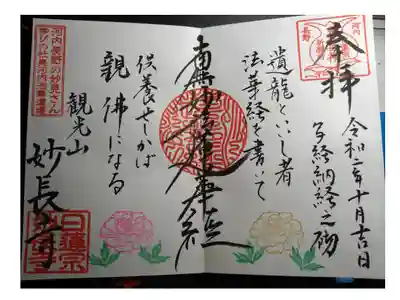 奉拝
令和二年十月吉日
写経納経之砌
遺龍といし者
法華経を書いて
南無妙法蓮華経
供養せしかば
親佛になる
観光山
妙長寺
河内長野の妙見さん
日蓮宗